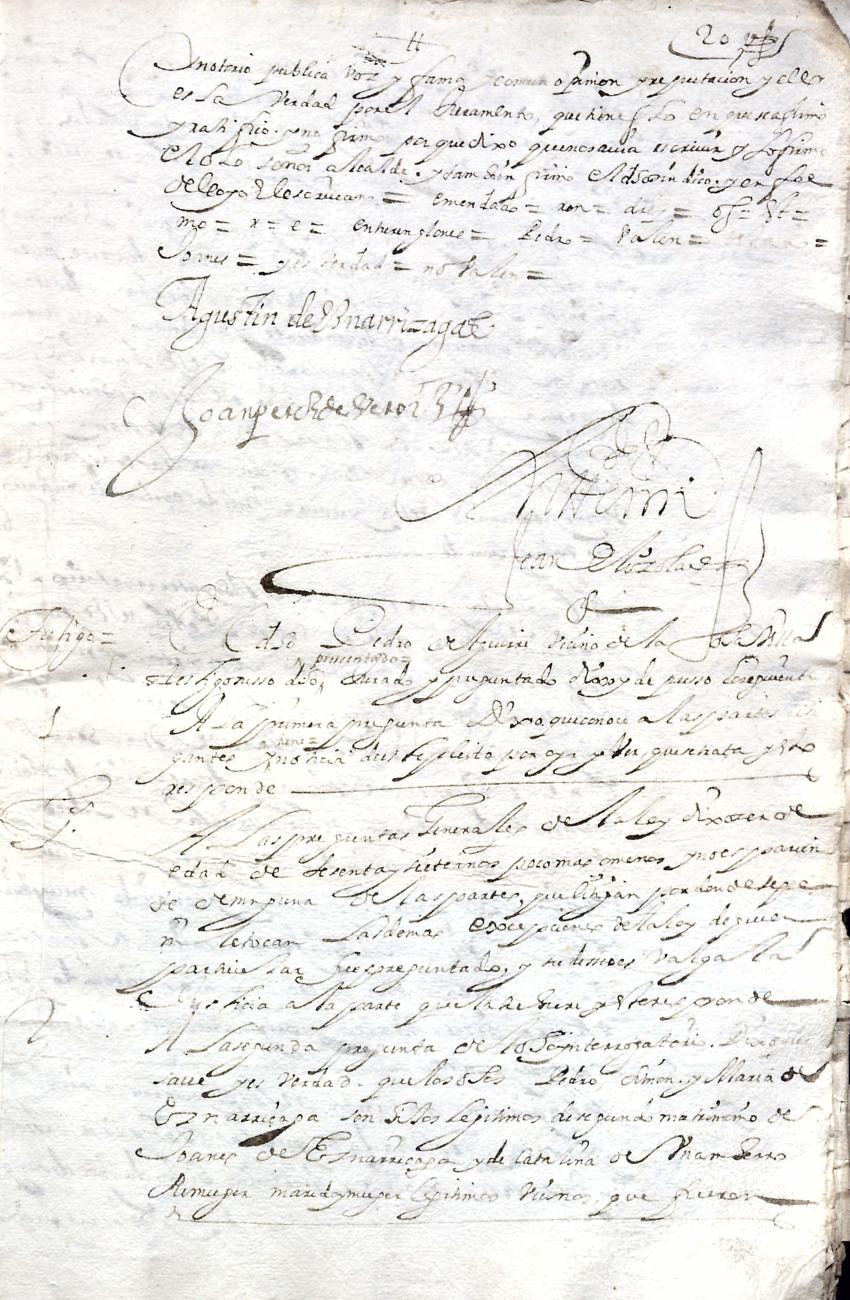 20
notorio publica voz y fama y comun opinion y reputacion y ello
es la verdad por el Juramento, que tiene fho en que se afirmo
y ratifico. y no firmo por que dixo que no savia escrivir y lo firmo
el dho señor alcalde. y tambien firmo el dho sindico. y en fee
de ello yo el escrivano = emendado = xon = diz = =
mo = x = e = entre renglones = Pedro = Valen =
Joanes = y es verdad = no Valen =
Agustin de Eznarrizaga
Joan perez de
Ante mi
Juan
Testigo = El dho Pedro de Aguirre vezino de la dha Villa
presentado =
testigo susso dho, Jurado y preguntado dixo y depusso lo siguiente
1 A la primera pregunta Dixo, que conoce a las partes liti
tiene =
gantes y noticia deste pleito por oyr y ver que se trata y esto
responde
A las preguntas Generales de la ley dixo ser de
edad de sesenta y siete años poco mas o menos y no es parien
te de ninguna de las partes, que litigan por donde sepa
ni le tocan las demas excepciones de la ley de que en
particular fue preguntado, y su desseo es Valga la
Justicia a la parte que la tubiere y esto responde
2 A la segunda pregunta de el dho interrogatorio. Dixo que
save y es verdad. que los dhos Pedro, Simon. y Maria de
Eznarriçaga son hijos legitimos de segundo matrimonio de
Joanes de Eznarriçaga y de Catalina de
su muger marido y muger legitimos vezinos que fueron